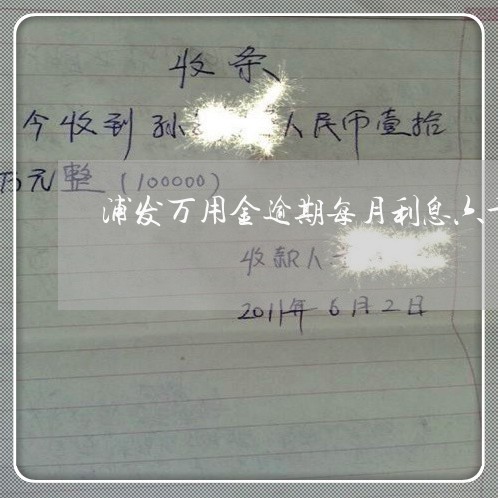 收条
今收到孙 人民币壹拾
万元整(100000)
浦发万用金逾期每月利息六
收款人
2011年6月2日